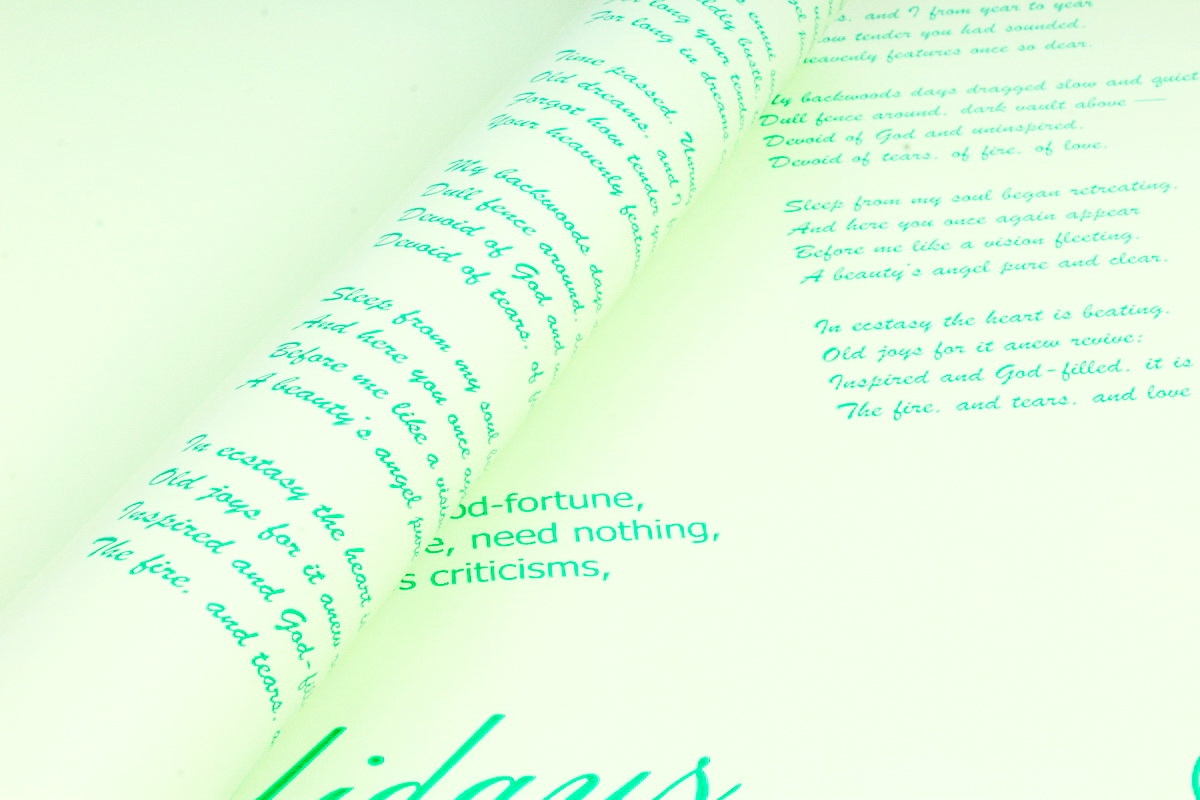 For long your tender
For long in dreams
Time passed.
Old dreams, and I
Forgot how tender
Your heavenly
My backwoods days
Dull fence around,
Devoid of God and
Devoid of tears, of
Sleep from my soul
And here you once
Before me like a
A beauty's angel pure
In ecstasy the heart
Old joys for it anew
Inspired and God-
The fire, and tears,
s, and I from year to year
ow tender you had sounded,
eavenly features once so dear.
My backwoods days dragged slow and quiet
Dull fence around, dark vault above —
Devoid of God and uninspired,
Devoid of tears, of fire, of love.
Sleep from my soul began retreating,
And here you once again appear
Before me like a vision fleeting,
A beauty's angel pure and clear.
In ecstasy the heart is beating,
Old joys for it anew revive;
Inspired and God-filled, it is
The fire, and tears, and love
od-fortune,
e, need nothing,
s criticisms,
lidays